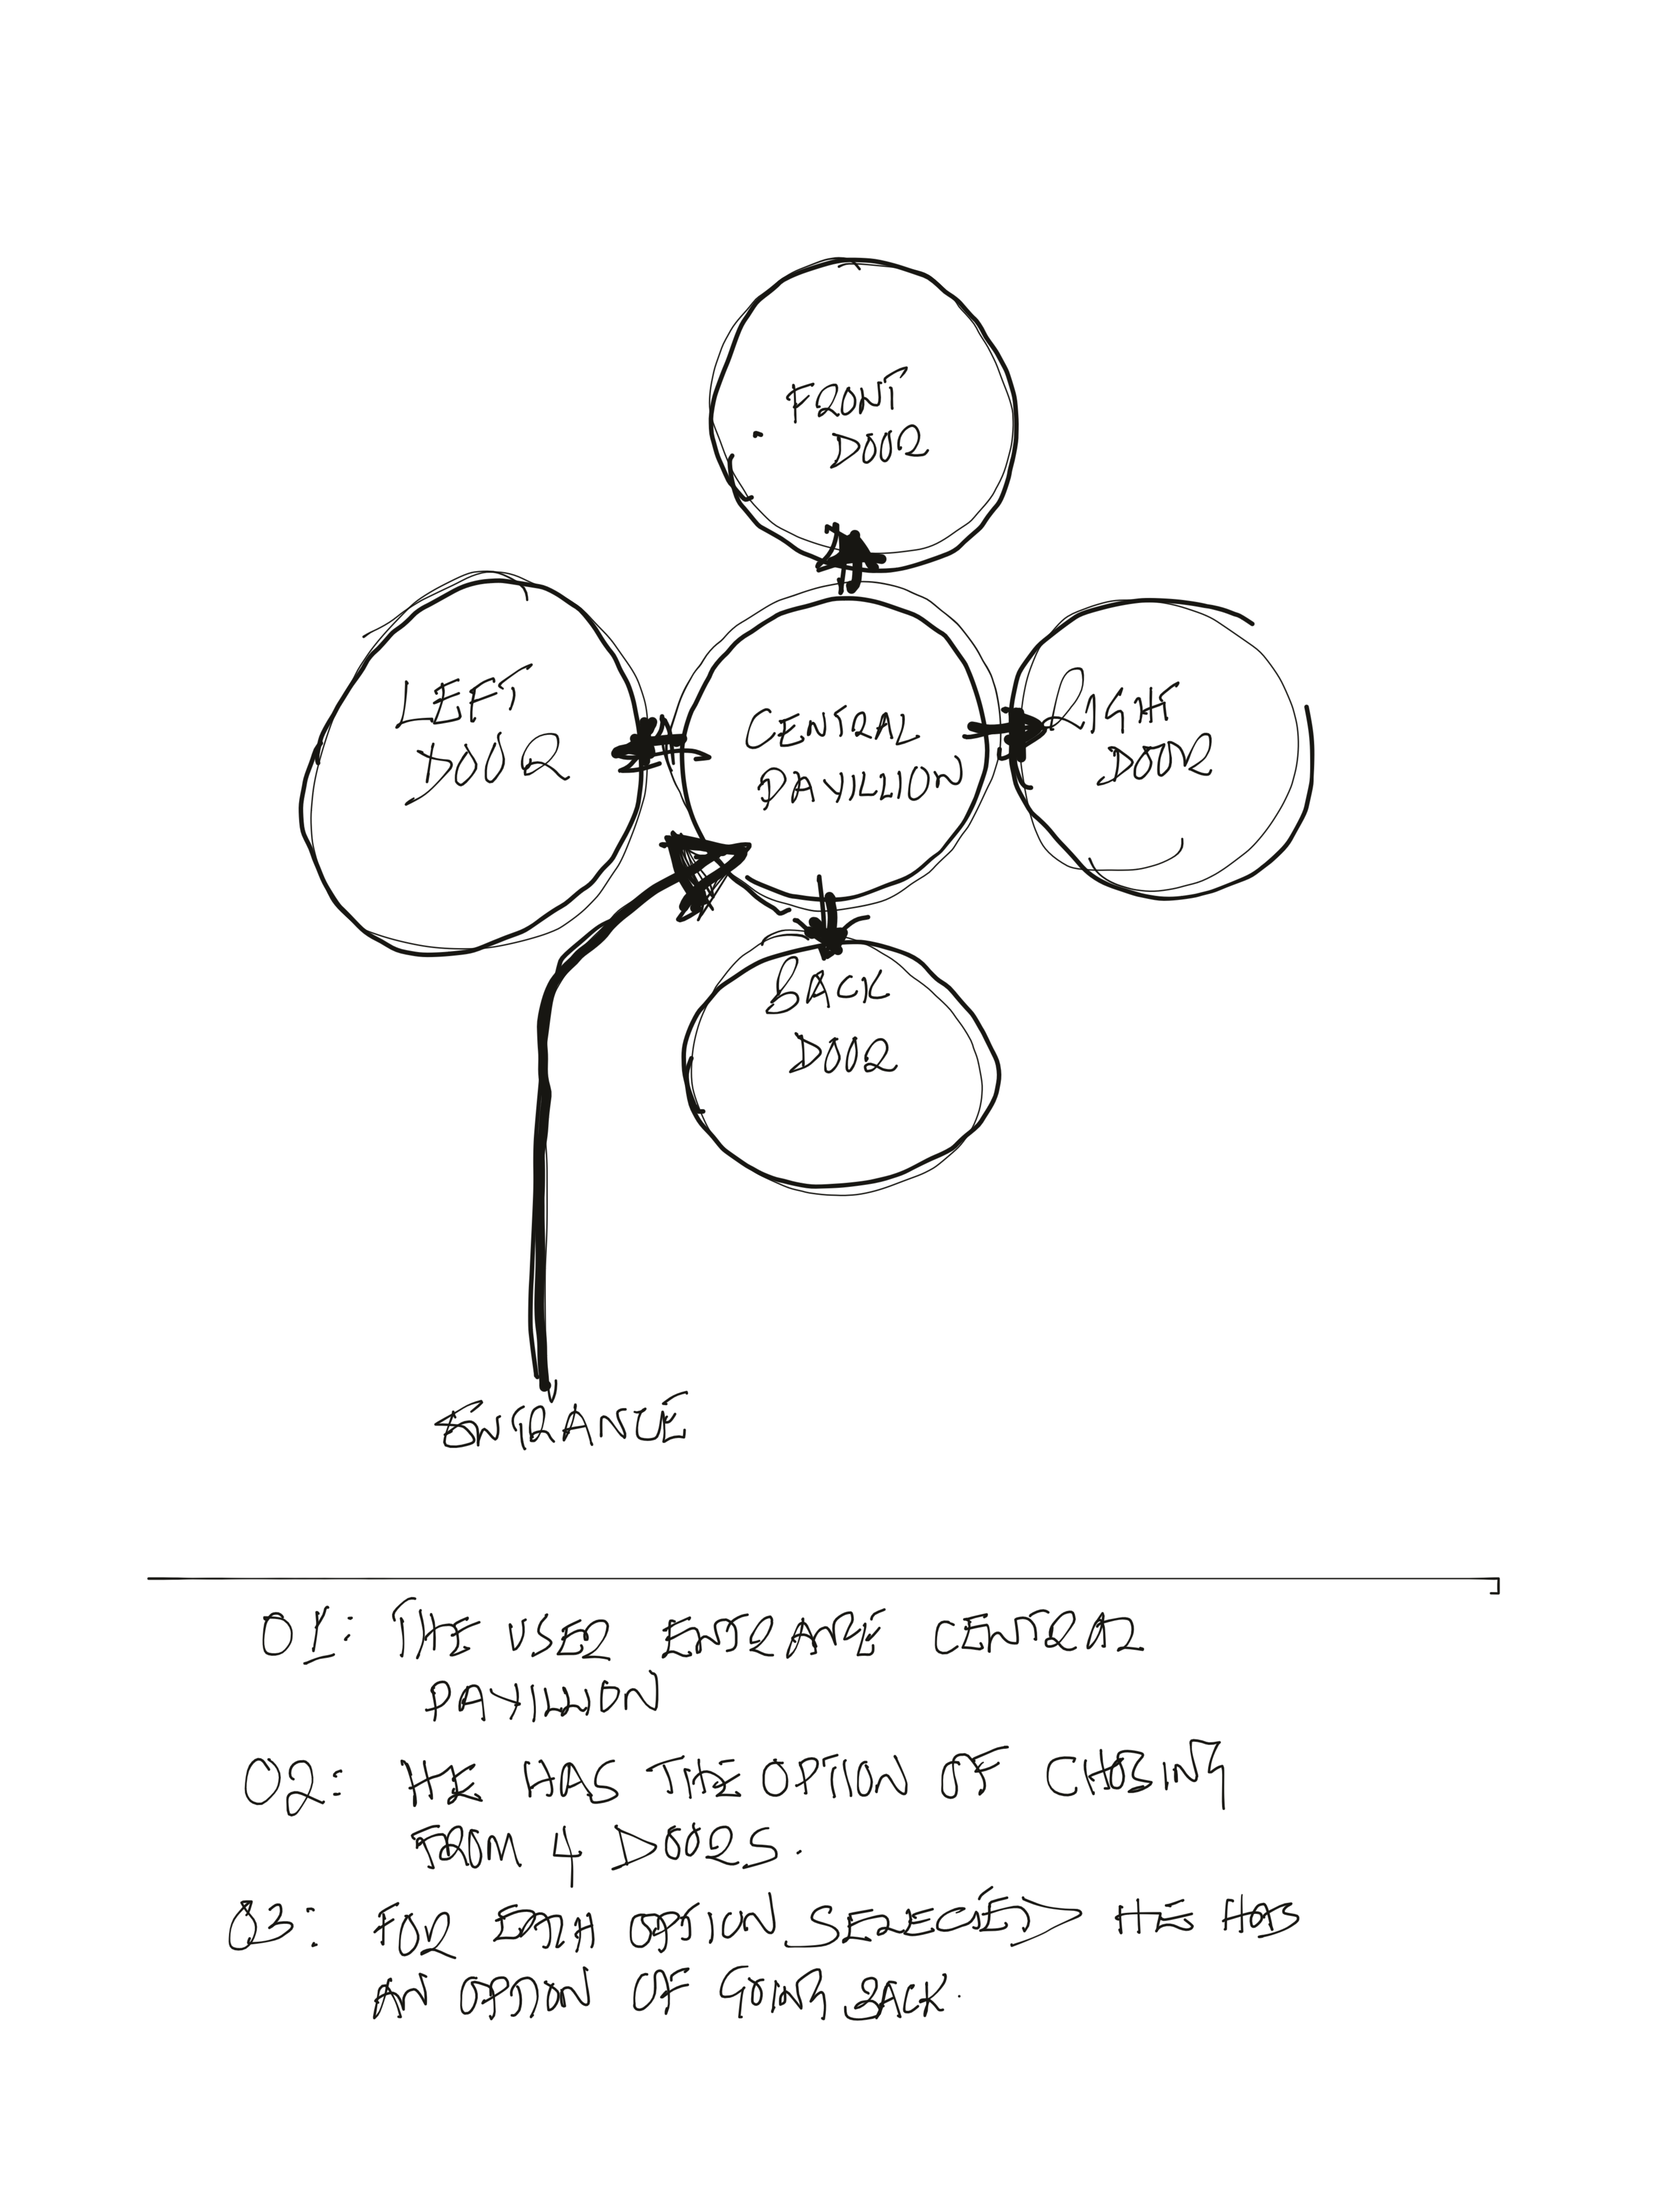 FRONT
DOOR
LEFT
DOOR
CENTRAL
PAVILLION
RIGHT
DOOR
BACK
DOOR
ENTRANCE
01: THE USER ENTRANCE CENTRAL
PAVILLION
02: HE HAS THE OPTION OF CHOSING
FROM 4 DOORS.
03: FOR EACH OPTION SELECTED HE HAS
AN OPTION OF GOING BACK.